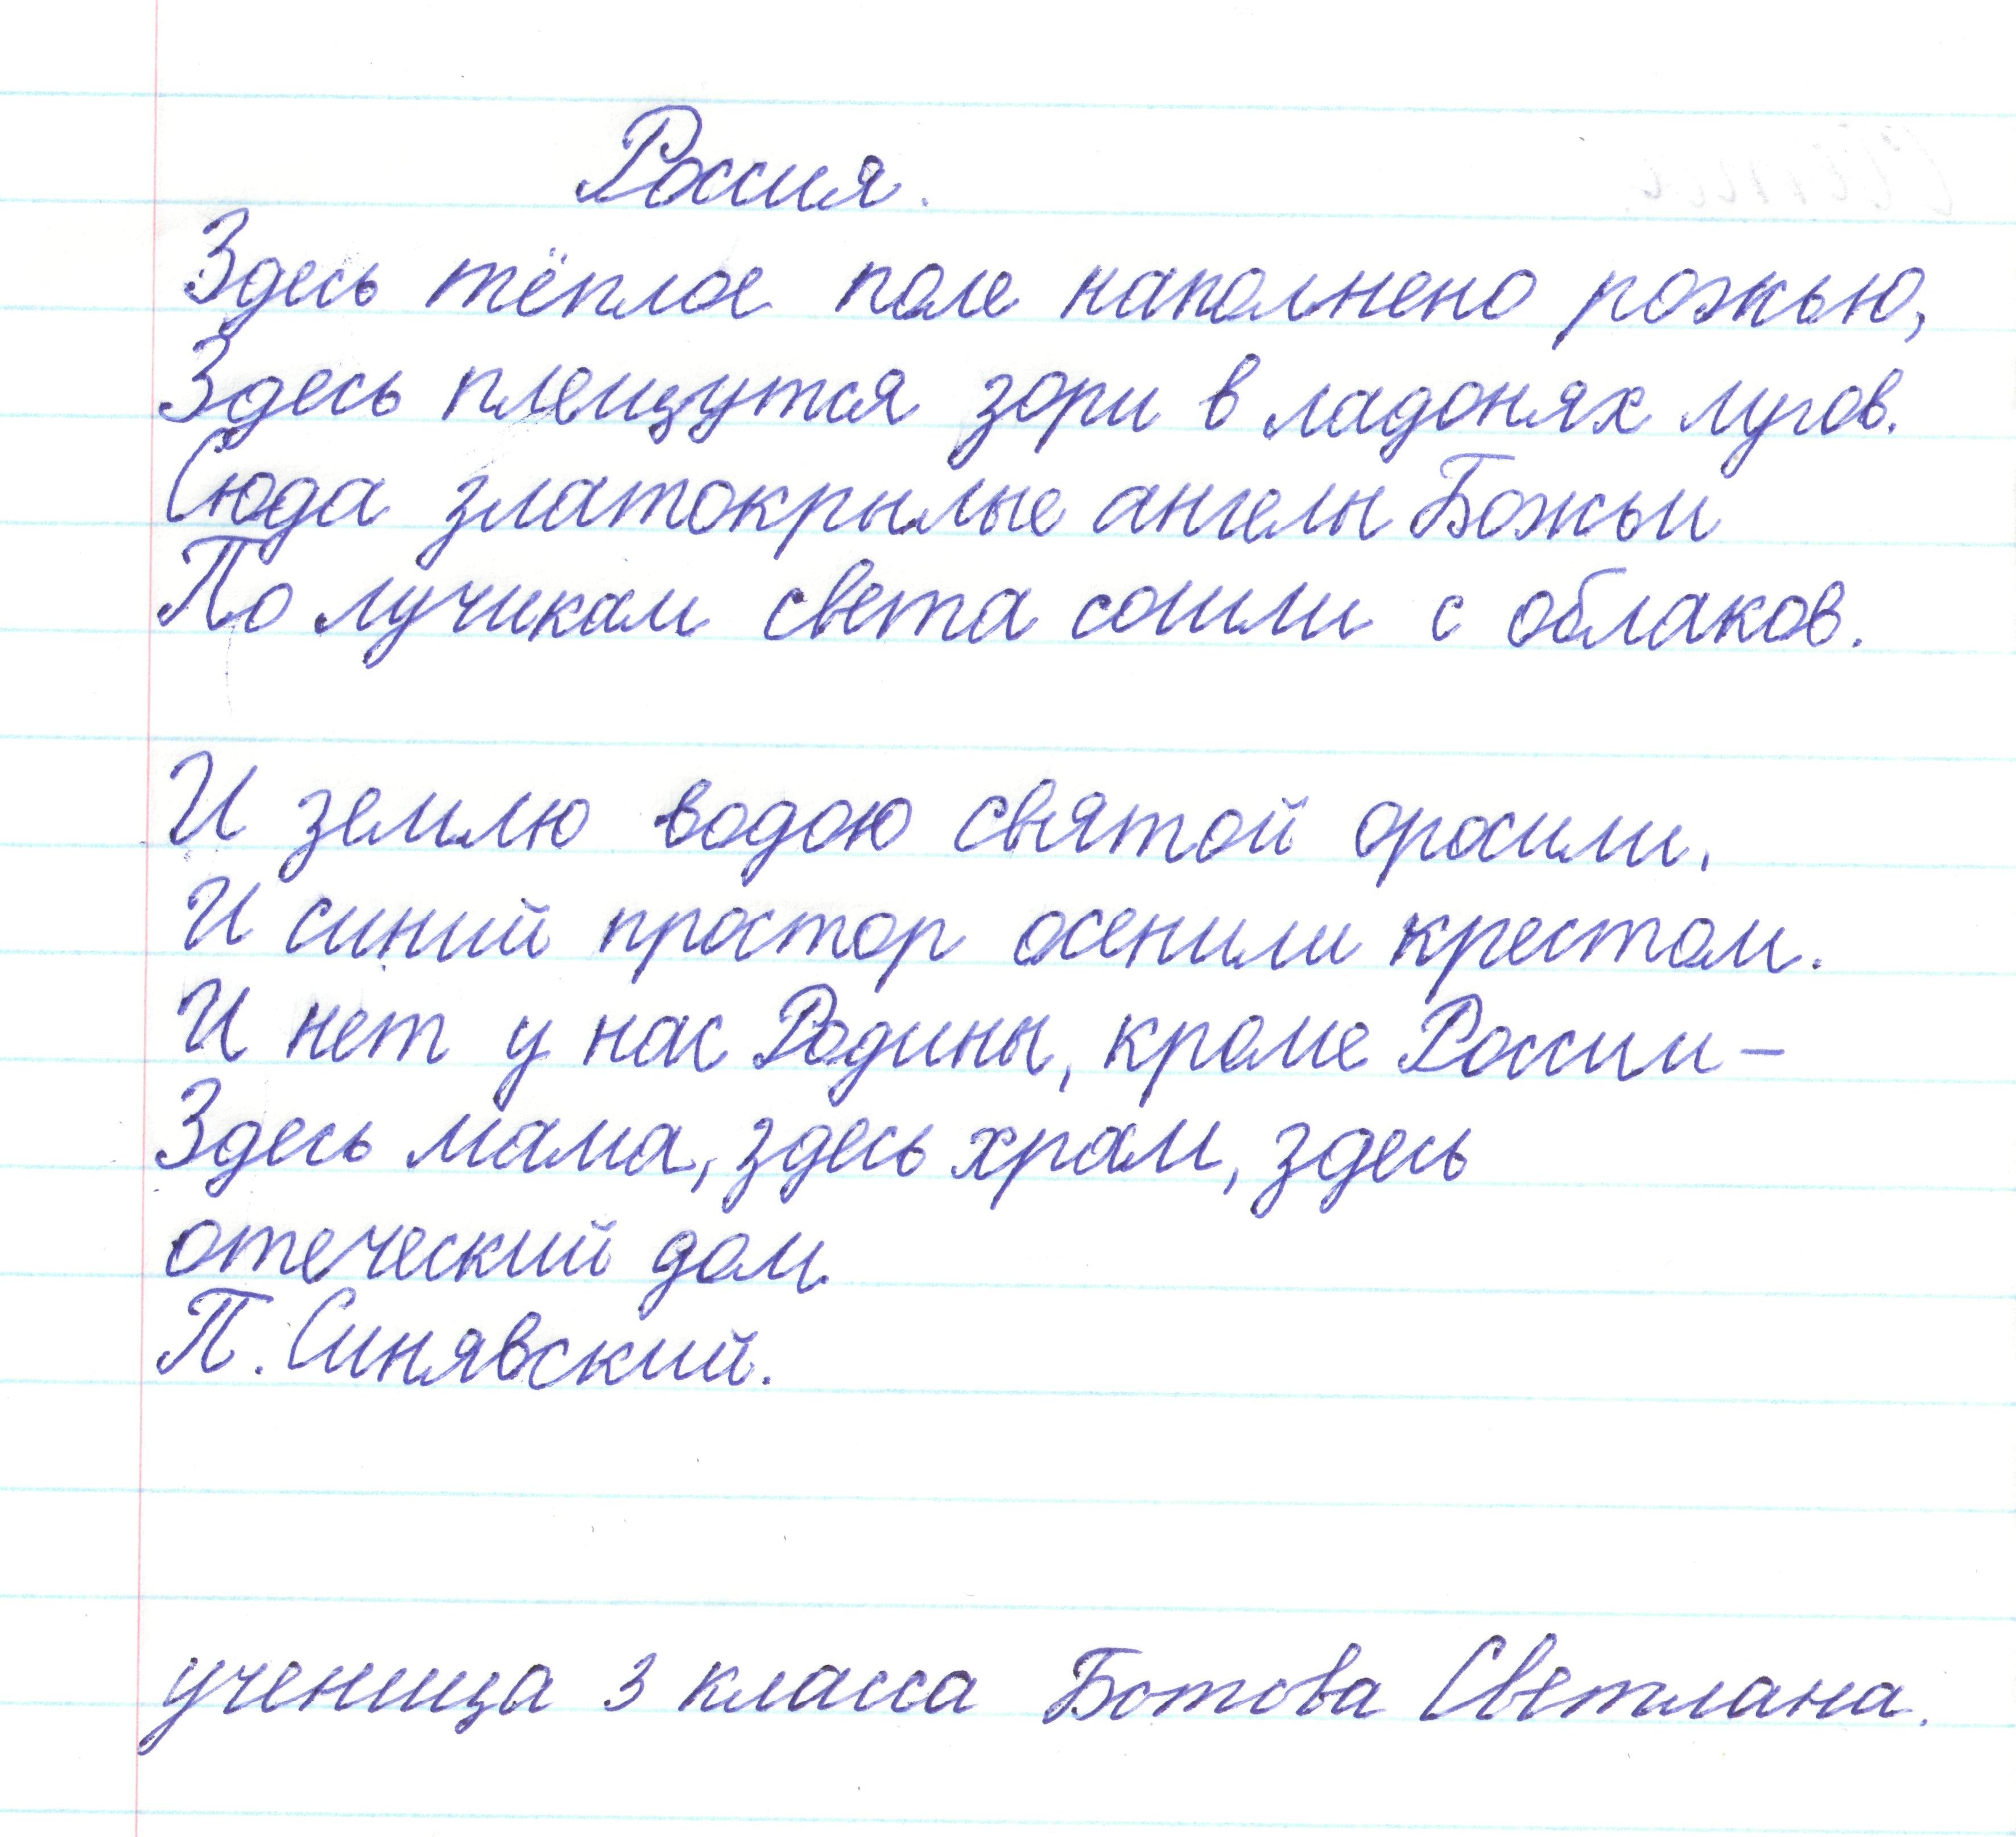 Россия.
Здесь тёплое поле наполнено рожью,
Здесь плещутся зори в ладонях лугов.
Сюда златокрылые ангелы Божьи
По лучикам света сошли с облаков.
И землю водою святой оросили,
И синий простор осенили крестом.
И нет у нас Родины, кроме России –
Здесь мама, здесь храм, здесь
отеческий дом.
П. Синявский.
ученица 3 класса Ботова Светлана.